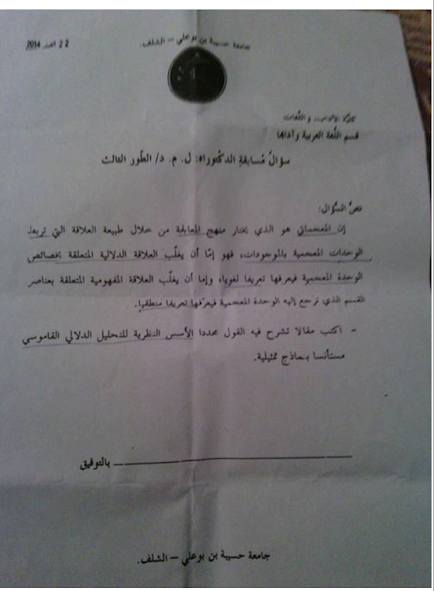 جامعة حسيبة بن بوعلي – الشلف.
2014
كلية الآداب واللغات
قسم اللغة العربية وآدابها
سؤال مسابقة الدكتوراه: ل. م. د/ الطور الثالث
نص السؤال:
إن المعجماتي هو الذي يختار منهج المعالجة من خلال طبيعة العلاقة التي تربط
الوحدات المعجمية بالموجودات، فهو إما أن يغلب العلاقة الدلالية المتعلقة بخصائص
الوحدة المعجمية فيعرفها تعريفا لغويا، وإما أن يغلب العلاقة المفهومية المتعلقة بعناصر
القسم الذي ترجع إليه الوحدة المعجمية فيعرفها تعريفا منطقيا.
- اكتب مقالا تشرح فيه القول محددا الأسس النظرية للتحليل الدلالي القاموسي
مستأنسا بنماذج تمثيلية.
بالتوفيق
جامعة حسيبة بن بوعلي – الشلف.